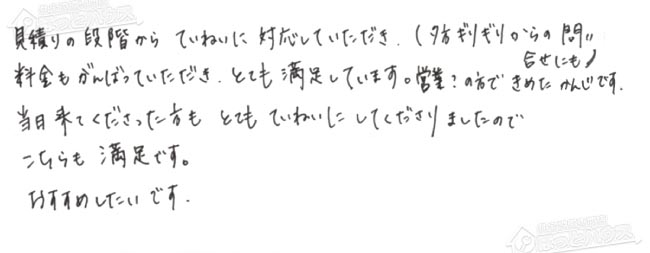 見積りの段階から ていねいに 対応していただき、(夕方ギリギリからの問い
合せにも)
料金もがんばっていただき、とても満足しています。営業?の方で きめた かんじです.
当日来てくださった方も とても ていねいに してくださりましたので
こちらも 満足です。
おすすめしたいです.